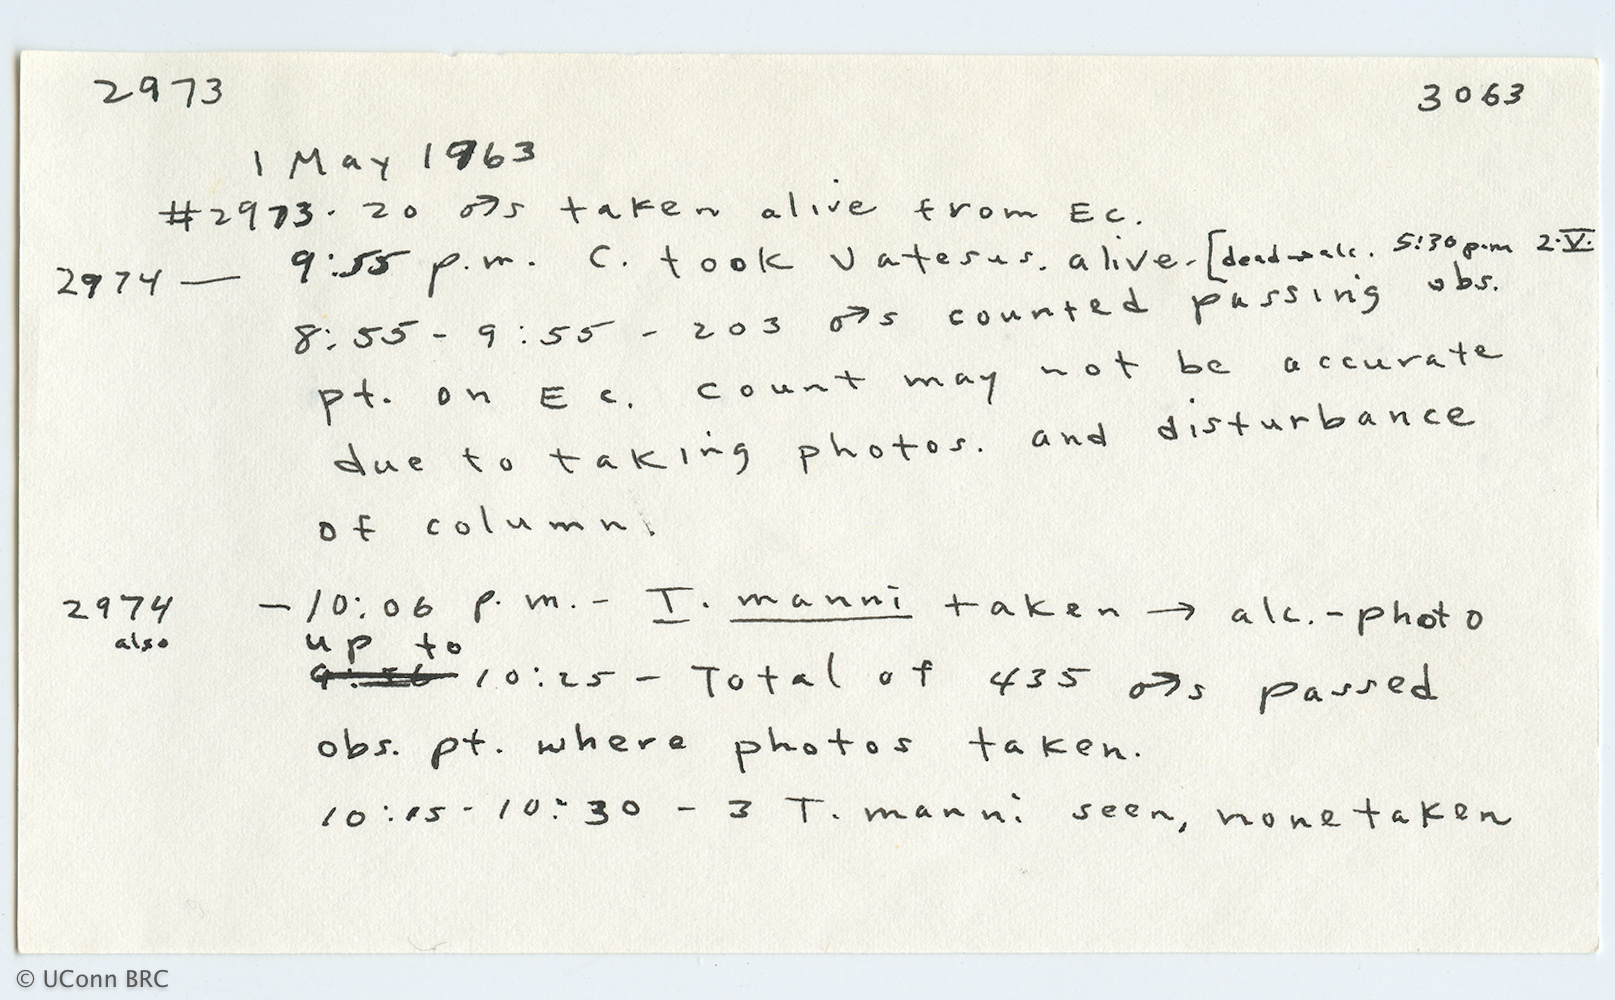 2973 3063
1 May 1963
#2973. 20 ♂s taken alive from Ec.
2974 — 9:55 p.m. C. took Vatesus. alive. [dead → alc. 5:30 p.m 2.V.
8:55 - 9:55 - 203 ♂s counted passing obs.
pt. on Ec. count may not be accurate
due to taking photos. and disturbance
of column.
2974 — 10:06 p.m. - T. manni taken → alc. - photo
also up to
9:56 10:25 - Total of 435 ♂s passed
obs. pt. where photos taken.
10:15 - 10:30 - 3 T. manni seen, none taken
© UConn BRC